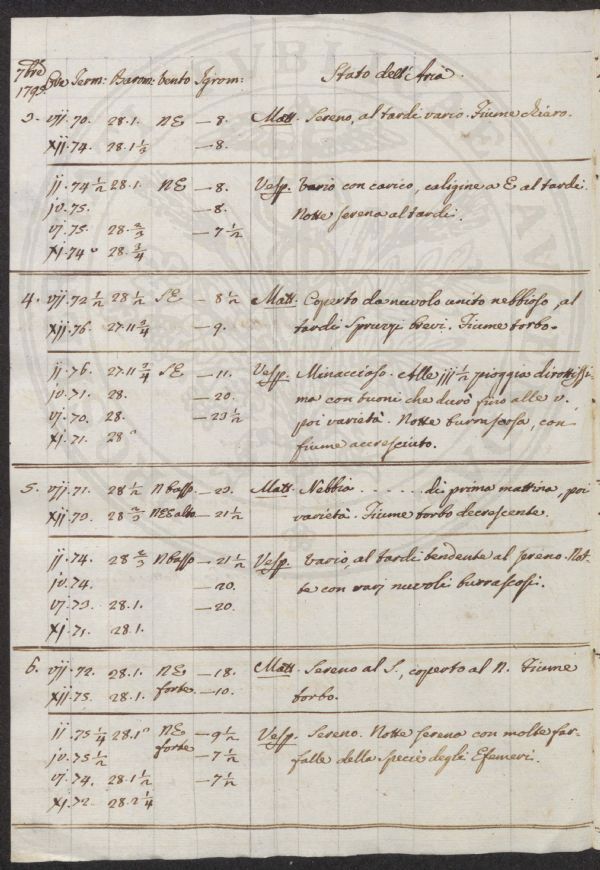 7bre
1798. Ore Term: Barom: Vento Igrom: Stato dell'Aria.
3. vij. 70. 28.1. NE —8. Matt. Sereno, al tardi vario. Fiume chiaro.
xij. 74. 28.1 1/3 —8.
ij. 74 1/2 28.1. NE —8. Vesp. Vario con carico, caligine a E al tardi.
iv. 75. —8. Notte serena al tardi.
vj. 75. 28. 2/3 —7 1/2
xj. 74 28. 3/4
4. vij. 72 1/2 28 1/2 SE —8 1/2 Matt. Coperto da nuvolo unito nebbioso, al
xij. 76. 27.11 3/4 —9. tardi Spruzzi brevi. Fiume torbo.
ij. 76. 27.11 3/4 SE —11. Vesp. Minaccioso. Alle iij 1/2 pioggia dirottissi
iv. 71. 28. —20. ma con tuoni che durò fino alle v.
vj. 70. 28. —23 1/2 poi varietà. Notte burrascosa, con
xj. 71. 28 fiume accresciuto.
5. vij. 71. 28 1/2 N basso —23. Matt. Nebbia . . . . . . di prima mattina, poi
xij. 73. 28 2/3 NE alto —21 1/2 varietà. Fiume torbo decrescente.
ij. 74. 28 2/3 N basso —21 1/2 Vesp. Vario, al tardi tendente al sereno. Not-
iv. 74. —20. te con varj nuvoli burrascosi.
vj. 73. 28.1. —20.
xj. 71. 28.1.
6. vij. 72. 28.1. NE —18. Matt. Sereno al S., coperto al N. Fiume
xij. 75. 28.1. forte —10. torbo.
ij. 75 1/4 28.1 NE —9 1/2 Vesp. Sereno. Notte serena con molte far-
iv. 75 1/2 forte —7 1/2 falle della specie degli Efemeri.
vj. 74. 28.1 1/2 —7 1/2
xj. 72. 28.2 1/4